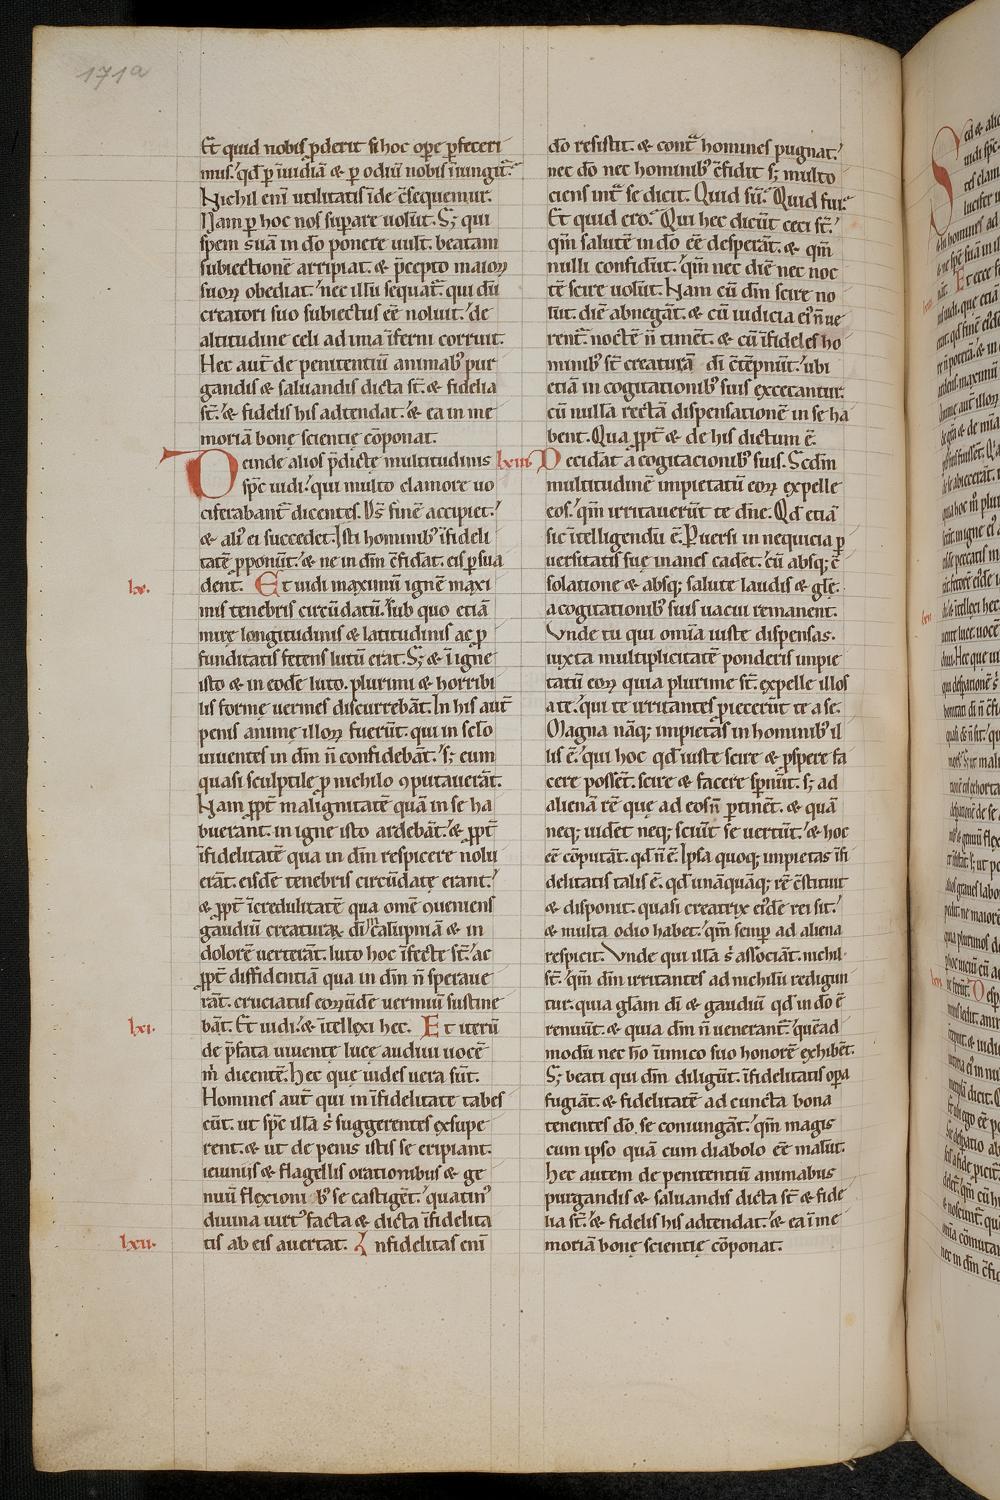 171a
Et quid nobis ꝑderit si hoc oꝑe ꝑfeceri
mus. qđ ꝑ īuidiā & ꝑ odiū nobis īiungit᷑.
Nichil enī utilitatis īde c̄sequemur.
Nam ꝑ hoc nos suꝑare uolūt. S; qui
spem suā in do ponere uult. beatam
subiectionē arripiat. & p̄cepto maioꝝ
suoꝝ obediat. nec illū sequat᷑. qui dū
creatori suo subiectus eē noluit. de
altitudine celi ad ima īferni corruit.
Hec aut̄ de penitentiū animab; pur
gandis & saluandis dicta st̄. & fidelia
st̄. & fidelis his adtendat. & ea in me
moriā bonę scientię cōponat.
Deinde alios p̄dictę multitudinis
sp̄c uidi. qui multo clamore uo
ciferabant᷑ dicentes. Ds̄ finē accipiet.
& ali᷒ ei succedet. Isti hominib; īfideli
tatē ꝓponūt. & ne in dm̄ c̄fidat. eis ꝑsua
dent. Et uidi maximū ignē maxi
lx.
mis tenebris circūdatū. sub quo etiā
mirę longitudinis & latitudinis ac ꝓ
funditatis fetens lutū erat. S; & ī igne
isto & in eodē luto. plurimi & horribi
lis formę uermes discurrebāt. In his aut̄
penis animę illoꝝ fuerūt. qui in sc̄lo
uiuentes in dm̄ n̄ confidebāt. s; eum
quasi sculptile ꝓ nichilo ꝯputauerāt.
Nam ꝓpt̄ malignitatē quā in se ha
buerant. in igne isto ardebāt. & ꝓpt̄
īfidelitatē qua in dm̄ respicere nolu
erāt. eisdē tenebris circūdatę erant.
& ꝓpt̄ īcredulitatē qua omē ꝯueniens
gaudiū creaturaꝝ di in calūpniā & in
dolorē uerterāt. luto hoc īfectę st̄. ac
ꝓpt̄ diffidentiā qua in dm̄ n̄ speraue
rāt. cruciatus eoꝝdē uermiū sustine
bāt. Et uidi. & ītellexi hec. Et iterū
lxi.
de p̄fata uiuente luce audiui uocē
m̄ dicentē. Hec que uides uera sūt.
Homines aut̄ qui in īfidelitate tabes
cūt. ut sp̄c illā s̄ suggerentes exsupe
rent. & ut de penis istis se eripiant.
ieiuniis & flagellis orationibus & ge
nuū flexionib; se castigēt. quatin᷒
diuina uirt᷒ facta & dicta īfidelita
tis ab eis auertat. Infidelitas enī
lxii.
do resistit. & cont̄ homines pugnat.
nec do nec hominib; c̄fidit s; multo
ciens int̄ se dicit. Quid sū? Quid fui?
Et quid ero? Qui hec dicūt ceci st̄.
qm̄ salutē in do eē desperāt. & qm̄
nulli confidūt. qm̄ nec diē nec noc
tē scire uolūt. Nam cū dm̄ scire no
lūt. diē abnegāt. & cū iudicia ei᷒ n̄ ue
rent᷑. noctē n̄ timēt. & cū īfideles ho
minib; st̄ creaturā di c̄tēpnūt. ubi
etiā in cogitationib; suis excecantur.
cū nullā rectā dispensationē in se ha
bent. Qua ꝓpt̄ & de his dictum ē.
lxiii. Decidāt a cogitacionib; suis. Scdm̄
multitudinē impietatū eoꝝ expelle
eos. qm̄ irritauerūt te dn̄e. Qđ etiā
sic ītelligendū ē. Puersi in nequicia ꝑ
uersitatis suę inanes cadēt. cū absq; c̄
solatione & absq; salute laudis & glę
a cogitationib; suis uacui remanent.
Vnde tu qui omīa iuste dispensas.
iuxta multiplicitatē ponderis impie
tatū eoꝝ quia plurimę st̄. expelle illos
a te. qui te irritantes ꝓiecerūt te a se.
Magna nāq; impietas in hominib; il
lis ē. qui hoc qđ iuste scire & ꝓspere fa
cere possēt. scire & facere spn̄ūt. s; ad
alienā rē que ad eos n̄ ꝑtinēt. & quā
neq; uidēt neq; sciūt se uertūt. & hoc
eē cōputāt. qđ n̄ ē. Ipsa quoq; impietas īfi
delitatis talis ē. qđ unāquāq; rē c̄stituit
& disponit. quasi creatrix ei᷒dē rei sit.
& multa odio habet. qm̄ semꝑ ad aliena
respicit. Vnde qui illā s̄ associāt. nichil
st̄. qm̄ dm̄ irritantes ad nichilū redigun
tur. quia glam di & gaudiū qđ in do ē
renuūt. & quia dm̄ n̄ uenerant᷑. quēad
modū nec ho inimico suo honorē exhibēt.
S; beati qui dm̄ diligūt. īfidelitatis oꝑa
fugiāt. & fidelitatē ad cuncta bona
tenentes do se coniungāt. qm̄ magis
cum ipso quā cum diabolo eē malūt.
Hec autem de penitentiū animabus
purgandis & saluandis dicta st̄ & fide
lia st̄. & fidelis his adtendat. & ea ī me
moriā bonę scientię cōponat.